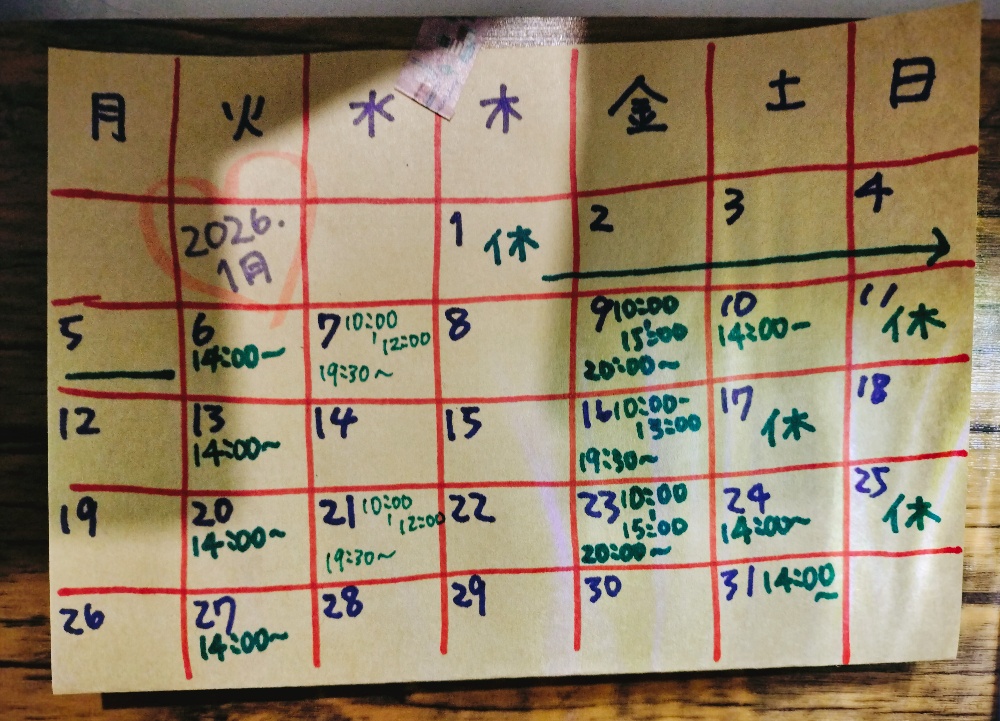 月 火 水 木 金 土 日
2026.
1月
1 休 2 3 4
5 6 7 10:00 8 9 10:00 10 11
14:00~ 12:00 15:00 14:00- 休
19:30~ 20:00~
12 13 14 15 16 10:00- 17 18
14:00~ 13:00 休
19:30~
19 20 21 10:00 22 23 10:00 24 25
14:00~ 12:00 15:00 14:00~ 休
19:30~ 20:00~
26 27 28 29 30 31 14:00~
14:00~